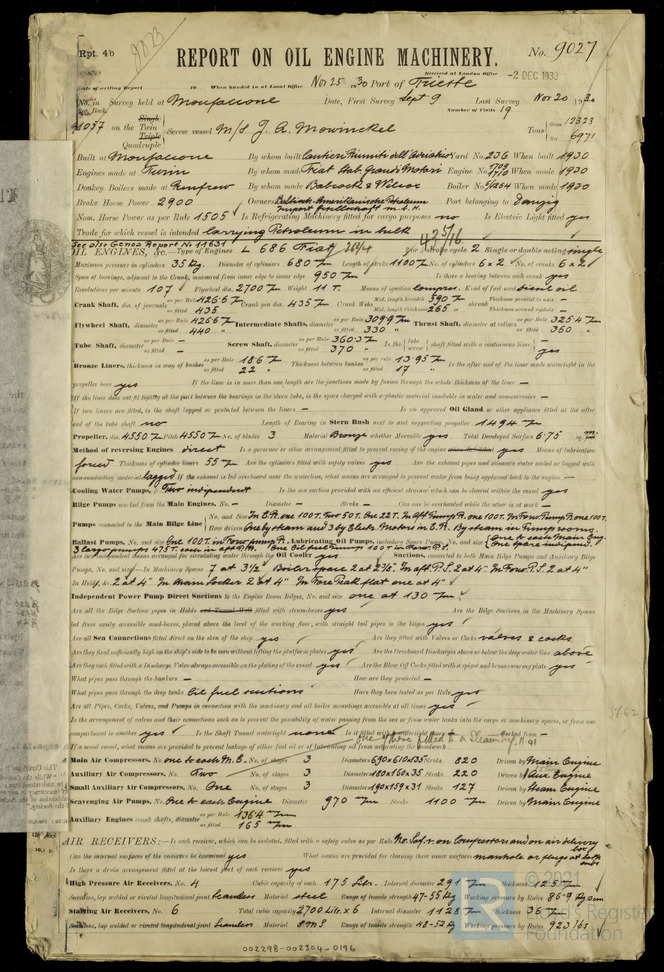 Rpt. 4b
9023
REPORT ON OIL ENGINE MACHINERY.
No. 9027
Received at London Office
-2 DEC 1930
Date of writing Report 19 When handed in at Local Office Nov 25 1930 Port of Trieste
No. in Survey held at Monfalcone Date, First Survey Sept 9 Last Survey Nov 20 1930
Number of Visits 19
on the Single Twin Triple Quadruple Screw vessel M/S J. A. Mowinckel Tons Gross Net 6971
Built at Monfalcone By whom built Cantieri Riuniti dell'Adriatico Yard No. 236 When built 1930
Engines made at Turin By whom made Fiat Stab. Grandi Motori Engine No. When made 1930
Donkey Boilers made at Renfrew By whom made Babcock & Wilcox Boiler No. When made 1930
Brake Horse Power 2900 Owners Port belonging to Danzig
Nom. Horse Power as per Rule 1505 Is Refrigerating Machinery fitted for cargo purposes no Is Electric Light fitted yes
Trade for which vessel is intended carrying Petroleum in bulk
See also Genoa Report No 11631
OIL ENGINES, &c.—Type of Engines L 686 Fiat 2 or 4 stroke cycle 2 Single or double acting single
Maximum pressure in cylinders 35 Kg. Diameter of cylinders 680 m/m Length of stroke No. of cylinders 6 x 2 No. of cranks 6 x 2
Span of bearings, adjacent to the Crank, measured from inner edge to inner edge 950 m/m Is there a bearing between each crank yes
Revolutions per minute 107 Flywheel dia. 2700 m/m Weight 11 T. Means of ignition compress. Kind of fuel used diesel oil
Crank Shaft, dia. of journals as per Rule 426.6 as fitted 435 Crank pin dia. 435 m/m Crank Webs Mid. length breadth 590 m/m Mid. length thickness 265
Flywheel Shaft, diameter as per Rule 426.6 as fitted 440 Intermediate Shafts, diameter as per Rule 309.9 as fitted 330 Thrust Shaft, diameter at collars as per Rule 325.4 as fitted 360
Tube Shaft, diameter as per Rule – as fitted – Screw Shaft, diameter as per Rule 360.3 as fitted 370 Is the tube screw shaft fitted with a continuous liner yes
Bronze Liners, thickness in way of bushes as per Rule 18.6 as fitted 22 Thickness between bushes as per rule 13.95 as fitted 17 Is the after end of the liner made watertight in the
propeller boss yes If the liner is in more than one length are the junctions made by fusion through the whole thickness of the liner –
If the liner does not fit tightly at the part between the bearings in the stern tube, is the space charged with a plastic material insoluble in water and non-corrosive –
If two liners are fitted, is the shaft lapped or protected between the liners – Is an approved Oil Gland or other appliance fitted at the after
end of the tube shaft no Length of Bearing in Stern Bush next to and supporting propeller 1494 m/m
Propeller, dia. 4550 Pitch 4550 No. of blades 3 Material Bronze whether Moveable yes Total Developed Surface 6.75 sq.
Method of reversing Engines direct yes Means of lubrication
forced Thickness of cylinder liners 55 m/m Are the cylinders fitted with safety valves yes Are the exhaust pipes and silencers water cooled or lagged with
non-conducting material lagged If the exhaust is led overboard near the waterline, what means are arranged to prevent water from being syphoned back to the engine –
Cooling Water Pumps, No. Two independent Is the sea suction provided with an efficient strainer which can be cleared within the vessel yes
Bilge Pumps worked from the Main Engines, No. – Diameter – Stroke – Can one be overhauled while the other is at work –
Pumps connected to the Main Bilge Line
How driven One by steam and 3 by Elect. Motors in E.R. By steam in Pump rooms.
Ballast Pumps, No. and size Lubricating Oil Pumps, including Spare Pump, No. and size
circulating water through the Oil Cooler yes
Pumps, No. and size:—In Machinery Spaces 7 at 3½" Boiler space 2 at 2½". In aft. P.S. 2 at 4". In For. P.S. 2 at 4"
In Holds, &c. 2 at 4" In Chain Locker 2 at 4" In Fore Peak flat one at 4"
Independent Power Pump Direct Suctions to the Engine Room Bilges, No. and size one at 130 m/m
Are all the Bilge Suction pipes in Holds fitted with strum-boxes yes Are the Bilge Suctions in the Machinery Spaces
led from easily accessible mud-boxes, placed above the level of the working floor, with straight tail pipes to the bilges yes
Are all Sea Connections fitted direct on the skin of the ship yes Are they fitted with Valves or Cocks valves & cocks
Are they fixed sufficiently high on the ship's side to be seen without lifting the platform plates yes Are the Overboard Discharges above or below the deep water line above
Are they each fitted with a Discharge Valve always accessible on the plating of the vessel yes Are the Blow Off Cocks fitted with a spigot and brass covering plate yes
What pipes pass through the bunkers – How are they protected –
What pipes pass through the deep tanks Oil fuel suctions Have they been tested as per Rule yes
Are all Pipes, Cocks, Valves, and Pumps in connection with the machinery and all boiler mountings accessible at all times yes
Is the arrangement of valves and their connections such as to prevent the possibility of water passing from the sea or from water tanks into the cargo or machinery spaces, or from one
compartment to another yes Is the Shaft Tunnel watertight none Is it fitted with worked from –
If a wood vessel, what means are provided to prevent leakage of either fuel oil or lubricating oil from saturating the woodwork
Main Air Compressors, No. one to each M.E. No. of stages 3 Diameters Stroke 820 Driven by Main Engine
Auxiliary Air Compressors, No. Two No. of stages 3 Diameters Stroke 220 Driven by Aux Engine
Small Auxiliary Air Compressors, No. One No. of stages 3 Diameters 190x159x31 Stroke 127 Driven by Steam Engine
Scavenging Air Pumps, No. One to each Engine Diameter 970 m/m Stroke 1100 m/m Driven by Main Engine
Auxiliary Engines crank shafts, diameter as per Rule 136.4 m/m as fitted 165 m/m
AIR RECEIVERS:—Is each receiver, which can be isolated, fitted with a safety valve as per Rule
Can the internal surfaces of the receivers be examined yes What means are provided for cleaning their inner surfaces manhole or plugs at both ends
Is there a drain arrangement fitted at the lowest part of each receiver yes
High Pressure Air Receivers, No. 4 Cubic capacity of each 175 Litr. Internal diameter 291 m/m thickness 12.5 m/m
Seamless, lap welded or riveted longitudinal joint Seamless Material steel Range of tensile strength 47-55 Kg Working pressure by Rules
Starting Air Receivers, No. 6 Total cubic capacity 2700 Litr. x 6 Internal diameter 1128 m/m thickness 36 m/m
Seamless, lap welded or riveted longitudinal joint Seamless Material Range of tensile strength Working pressure by Rules
© 2021
Lloyd's Register
Foundation
002298-002304-0196